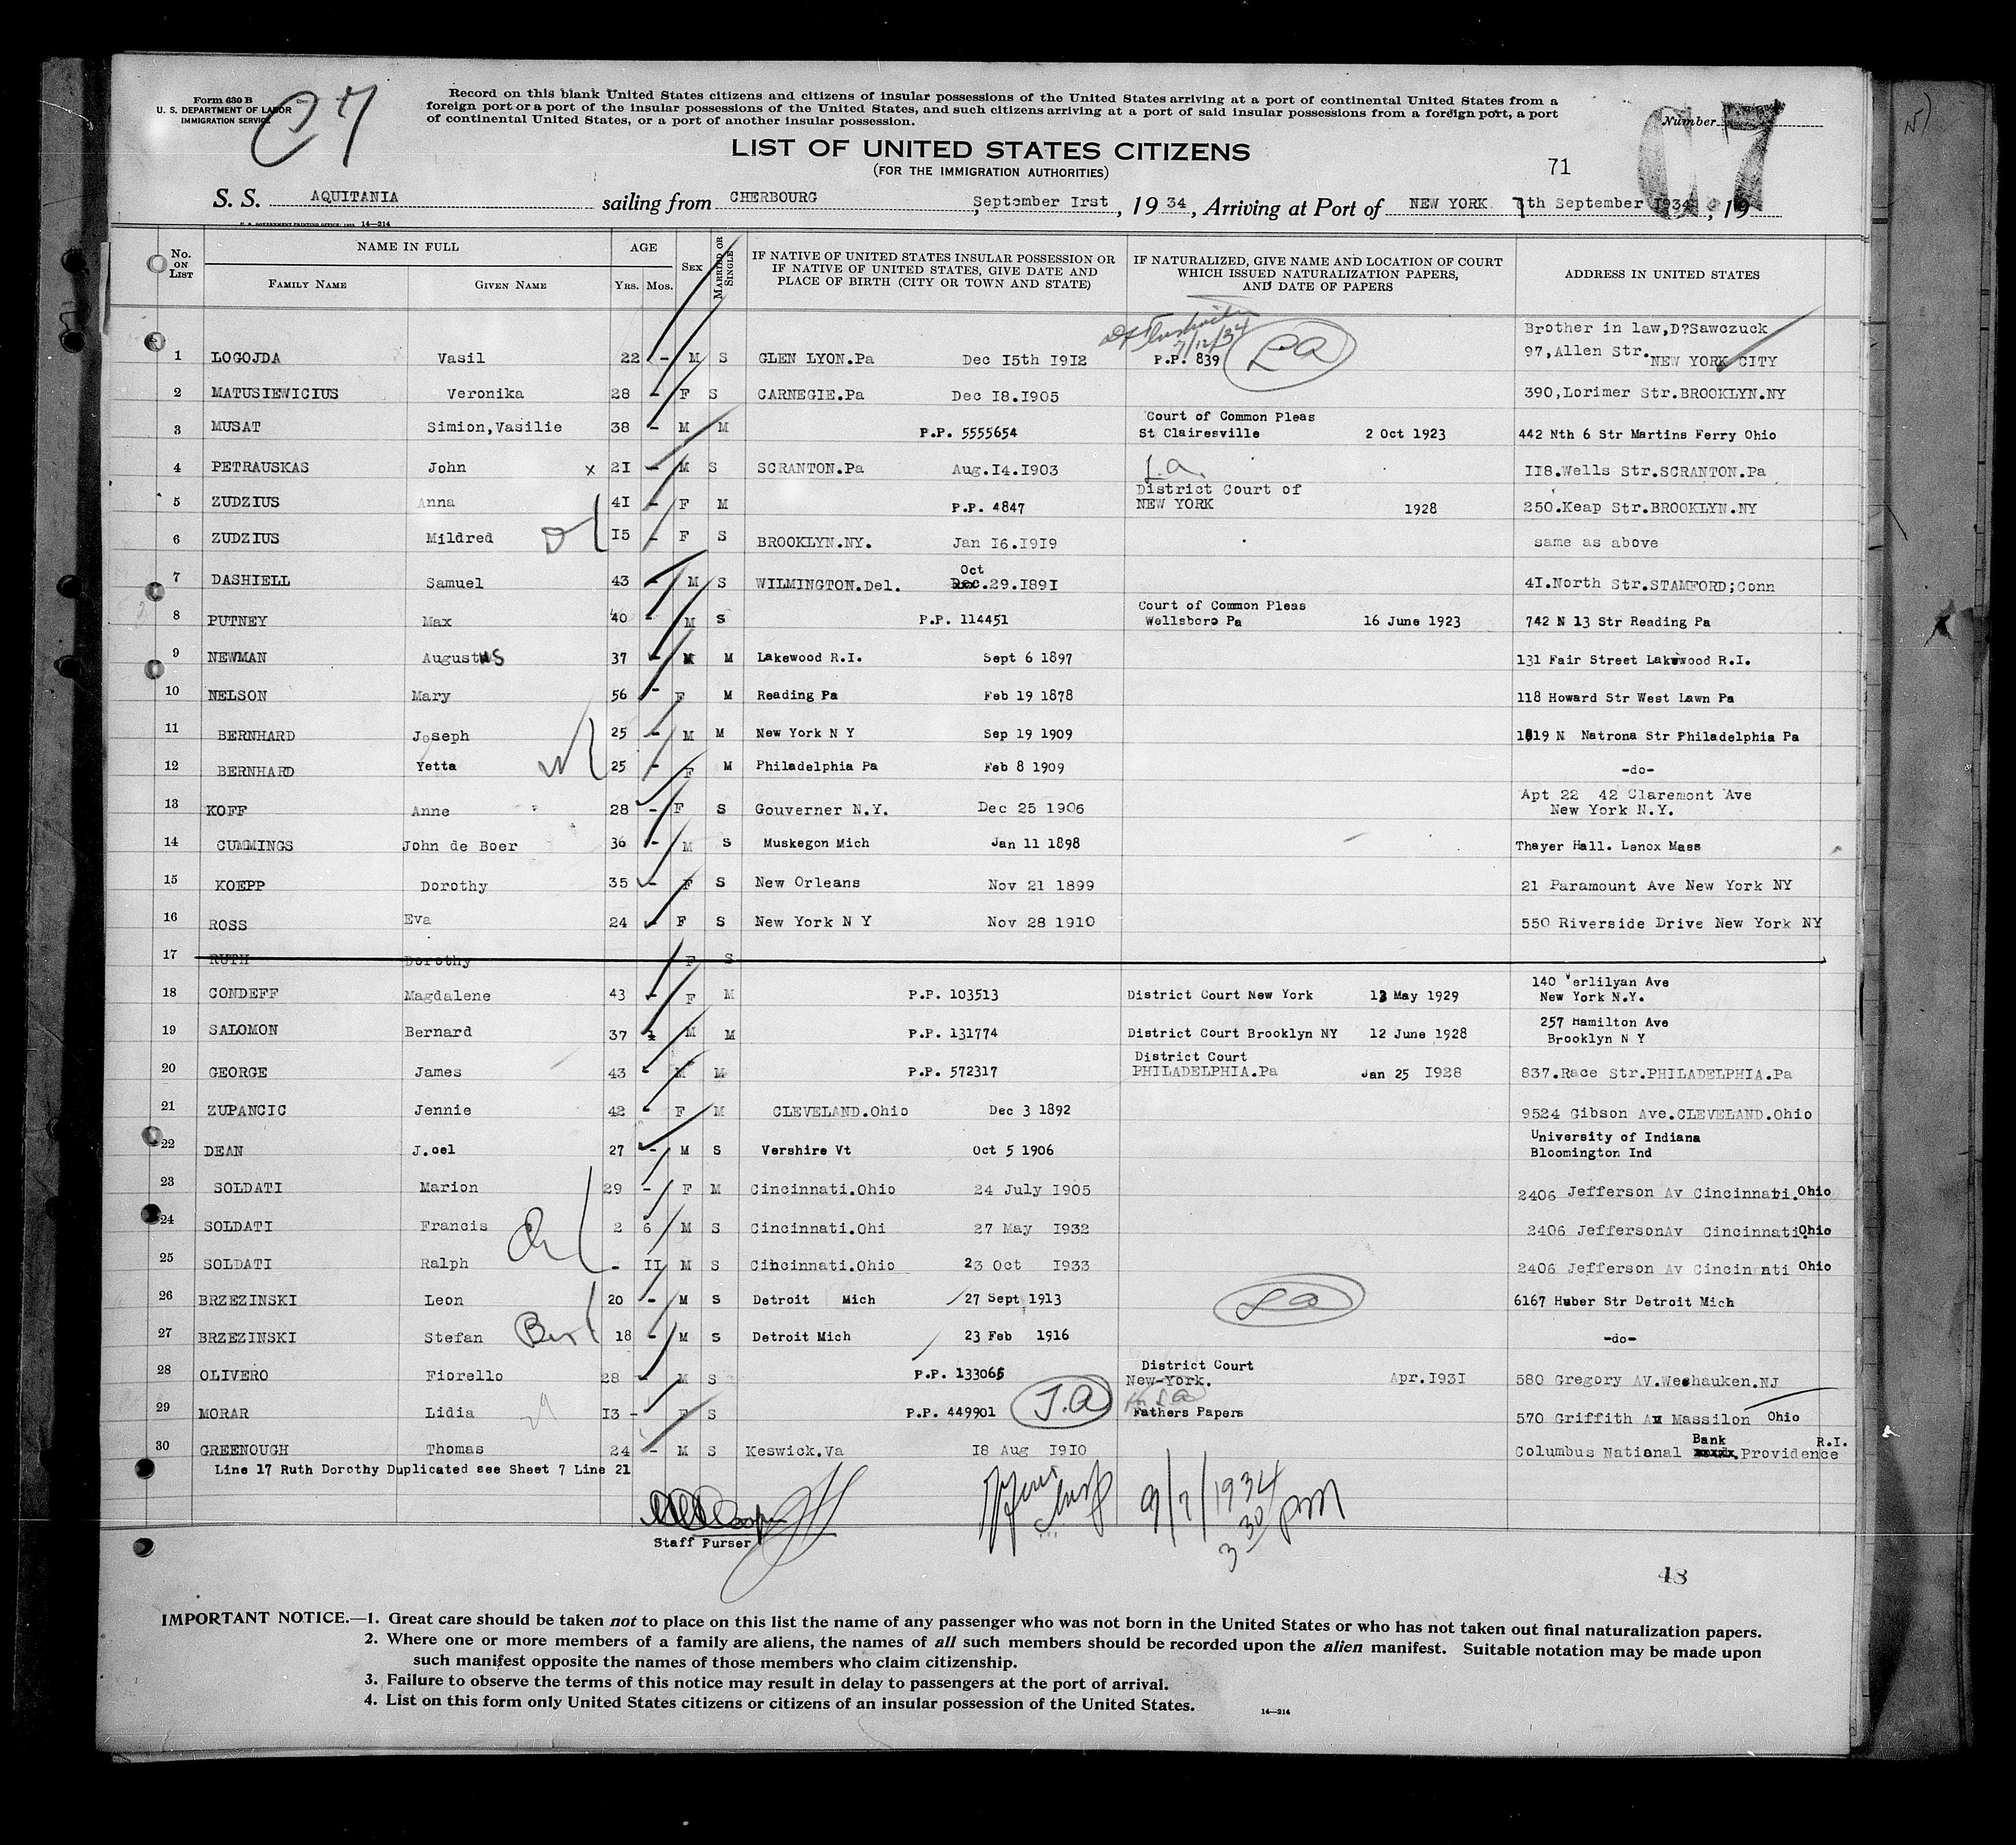 Form 630 B
U. S. DEPARTMENT OF LABOR
IMMIGRATION SERVICE
27
Record on this blank United States citizens and citizens of insular possessions of the United States arriving at a port of continental United States from a
foreign port or a port of the insular possessions of the United States, and such citizens arriving at a port of said insular possessions from a foreign port, a port
of continental United States, or a port of another insular possession.
Number
67
LIST OF UNITED STATES CITIZENS
(FOR THE IMMIGRATION AUTHORITIES)
71
S. S. AQUITANIA sailing from CHERBOURG, September Irst, 19 34, Arriving at Port of NEW YORK 7th September 1934, 19
14—214
No. ON LIST NAME IN FULL AGE SEX MARRIED OR SINGLE IF NATIVE OF UNITED STATES INSULAR POSSESSION OR IF NATIVE OF UNITED STATES, GIVE DATE AND PLACE OF BIRTH (CITY OR TOWN AND STATE) IF NATURALIZED, GIVE NAME AND LOCATION OF COURT WHICH ISSUED NATURALIZATION PAPERS, AND DATE OF PAPERS ADDRESS IN UNITED STATES
FAMILY NAME GIVEN NAME YRS. MOS.
7/12/34
Brother in law,D?Sawczuck
1 LOGOJDA Vasil 22 - M S GLEN LYON.Pa Dec I5th I9I2 P.P. 839 97,Allen Str. NEW YORK CITY
2 MATUSIEWICIUS Veronika 28 - F S CARNEGIE.Pa Dec I8.I905 390,Lorimer Str.BROOKLYN.NY
Court of Common Pleas
3 MUSAT Simion,Vasilie 38 - M M P.P. 5555654 St Clairesville 2 Oct 1923 442 Nth 6 Str Martins Ferry Ohio
4 PETRAUSKAS John x 2I - M S SCRANTON.Pa Aug.I4.I903 II8.Wells Str.SCRANTON.Pa
District Court of
5 ZUDZIUS Anna 4I - F M P.P. 4847 NEW YORK 1928 250.Keap Str.BROOKLYN.NY
6 ZUDZIUS Mildred I5 - F S BROOKLYN.NY. Jan I6.I9I9 same as above
Oct
7 DASHIELL Samuel 43 - M S WILMINGTON.Del. Dec.29.I89I 4I.North Str.STAMFORD;Conn
Court of Common Pleas
8 PUTNEY Max 40 - M S P.P. 114451 Wellsboro Pa 16 June 1923 742 N 13 Str Reading Pa
9 NEWMAN Augustus 37 - M M Lakewood R.I. Sept 6 1897 131 Fair Street Lakewood R.I.
10 NELSON Mary 56 - F M Reading Pa Feb 19 1878 118 Howard Str West Lawn Pa
11 BERNHARD Joseph 25 - M M New York N Y Sep 19 1909 1819 N Natrona Str Philadelphia Pa
12 BERNHARD Yetta 25 - F M Philadelphia Pa Feb 8 1909 -do-
Apt 22 42 Claremont Ave
13 KOFF Anne 28 - F S Gouverner N.Y. Dec 25 1906 New York N.Y.
14 CUMMINGS John de Boer 36 - M S Muskegon Mich Jan 11 1898 Thayer Hall. Lenox Mass
15 KOEPP Dorothy 35 - F S New Orleans Nov 21 1899 21 Paramount Ave New York NY
16 ROSS Eva 24 - F S New York N Y Nov 28 1910 550 Riverside Drive New York NY
17 RUTH Dorothy F S
140 erlilyan Ave
18 CONDEFF Magdalene 43 - F M P.P. 103513 District Court New York 13 May 1929 New York N.Y.
257 Hamilton Ave
19 SALOMON Bernard 37 M M P.P. 131774 District Court Brooklyn NY 12 June 1928 Brooklyn N Y
District Court
20 GEORGE James 43 - M M P.P. 572317 PHILADELPHIA.Pa Jan 25 I928 837.Race Str.PHILADELPHIA.Pa
21 ZUPANCIC Jennie 42 - F M CLEVELAND.Ohio Dec 3 1892 9524 Gibson Ave.CLEVELAND.Ohio
University of Indiana
22 DEAN J.oel 27 - M S Vershire Vt Oct 5 1906 Bloomington Ind
23 SOLDATI Marion 29 - F M Cincinnati.Ohio 24 July I905 2406 Jefferson Av Cincinnati.Ohio
24 SOLDATI Francis 2 6 M S Cincinnati.Ohi 27 May I932 2406 JeffersonAv Cincinnati.Ohio
25 SOLDATI Ralph - II M S Cincinnati.Ohio 23 Oct I933 2406 Jefferson Av Cincin nati Ohio
26 BRZEZINSKI Leon 20 - M S Detroit Mich 27 Sept 1913 6167 Huber Str Detroit Mich
27 BRZEZINSKI Stefan 18 - M S Detroit Mich 23 Feb 1916 -do-
District Court
28 OLIVERO Fiorello 28 - M S P.P. 133065 New-York. Apr.I93I 580 Gregory AV.Weehauken.NJ
29 MORAR Lidia I3 - F S P.P. 449901 J.a Fathers Papers 570 Griffith Av Massilon Ohio
Bank R.I.
30 GREENOUGH Thomas 24 - M S Keswick.Va I8 Aug I9I0 Columbus National Providence
Line 17 Ruth Dorothy Duplicated see Sheet 7 Line 21
9/7/1934
3 30 PM
Staff Purser
48
IMPORTANT NOTICE.—1. Great care should be taken not to place on this list the name of any passenger who was not born in the United States or who has not taken out final naturalization papers.
2. Where one or more members of a family are aliens, the names of all such members should be recorded upon the alien manifest. Suitable notation may be made upon
such manifest opposite the names of those members who claim citizenship.
3. Failure to observe the terms of this notice may result in delay to passengers at the port of arrival.
4. List on this form only United States citizens or citizens of an insular possession of the United States.
14—214